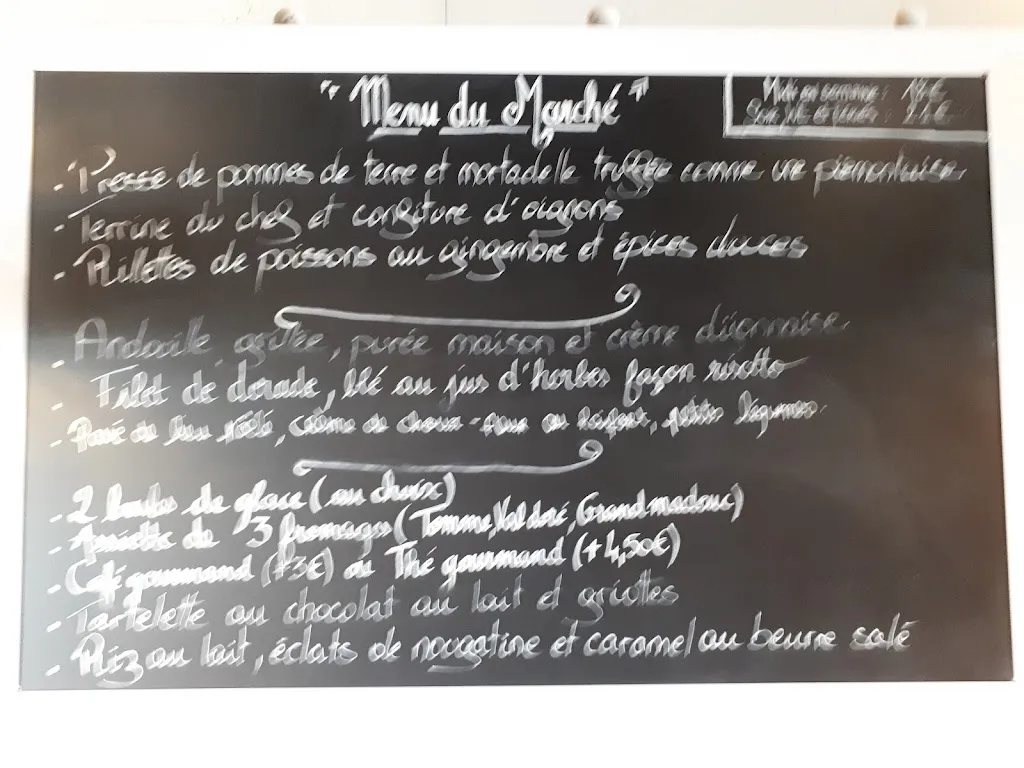 "Menu du Marché"
Midi en semaine : 18€
Soir, : 22€
- Pressé de pommes de terre et mortadelle truffée comme une piémontaise
- Terrine du chef et confiture d'oignons
- Rillettes de poissons au gingembre et épices douces
- Andouille grillée, purée maison et crème dijonnaise
- Filet de dorade, blé au jus d'herbes façon risotto
- Pavé de lieu rôti, crème de choux-fleur au raifort, petits légumes
- 2 boules de glace (au choix)
- Assiette de 3 fromages (Tomme, Val doré, Grand madouc)
- Café gourmand (+3€) ou Thé gourmand (+4,50€)
- Tartelette au chocolat au lait et griottes
- Riz au lait, éclats de nougatine et caramel au beurre salé